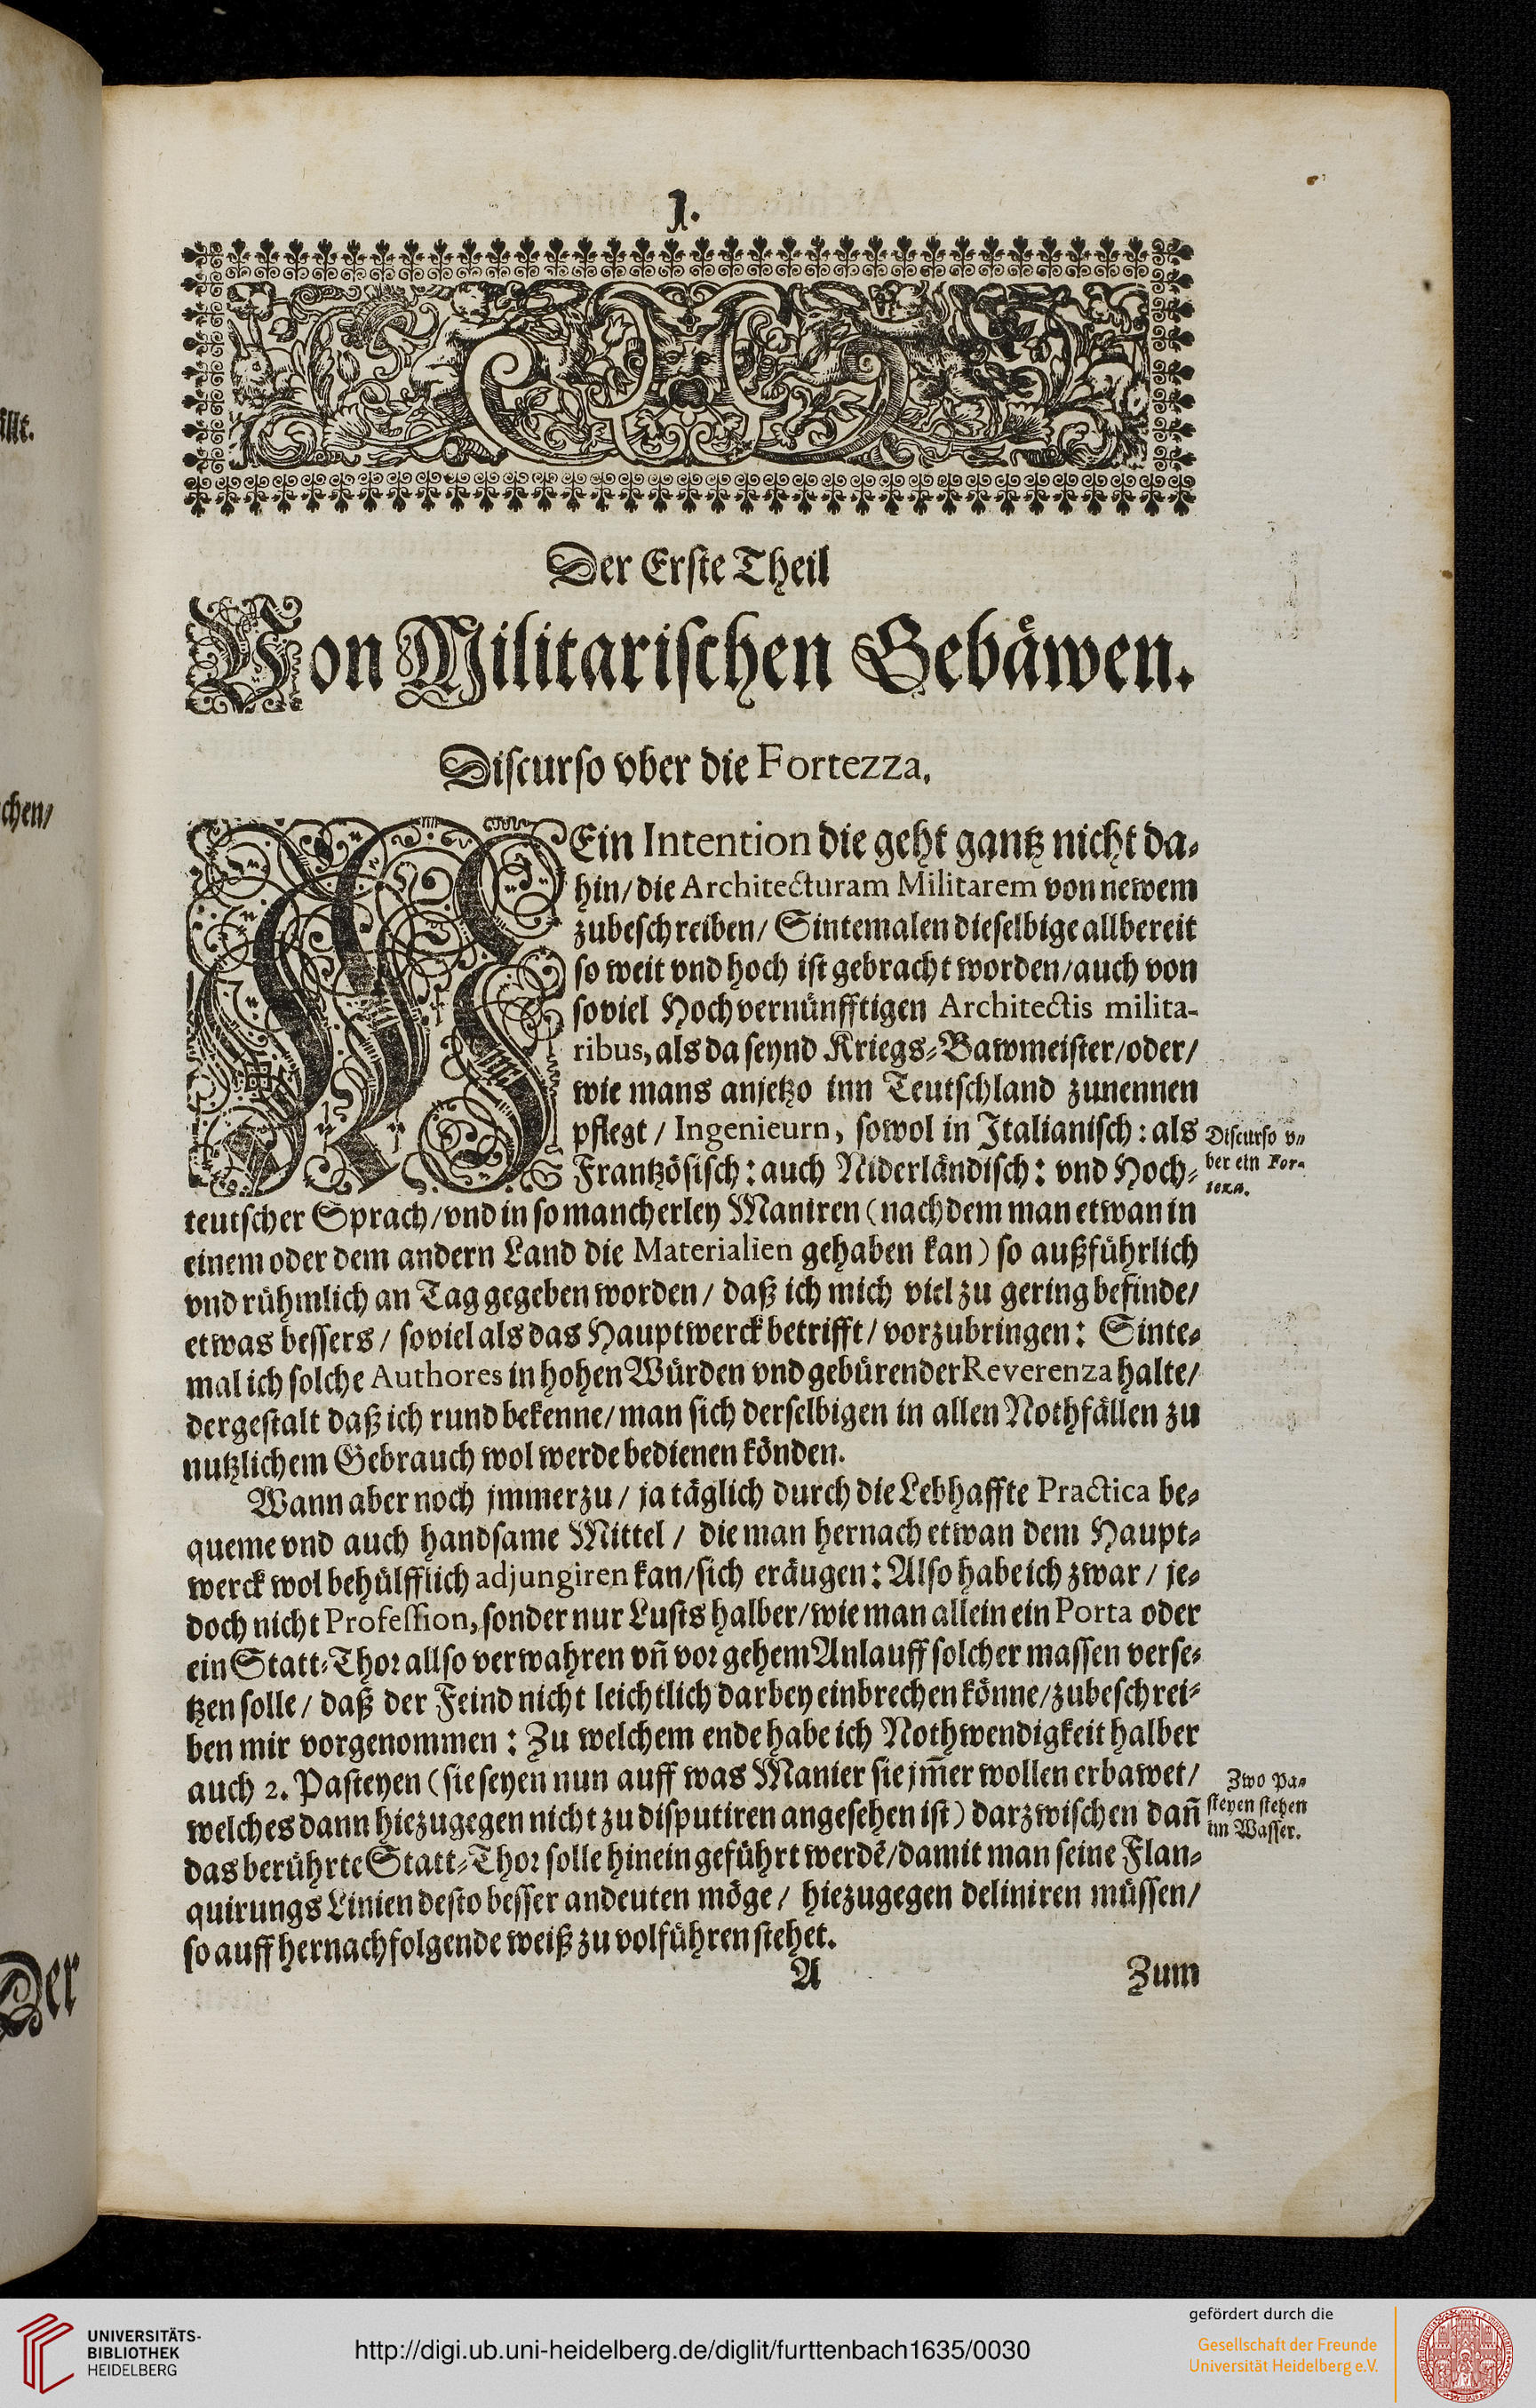 1.
Der Erste Theil
Von Militarischen Gebäwen.
Discurso vber die Fortezza.
MEin Intention die geht gantz nicht da-
hin/ die Architecturam Militarem von newem
zubeschreiben/ Sintemalen dieselbige allbereit
so weit vnd hoch ist gebracht worden/ auch von
soviel Hochvernünfftigen Architectis milita-
ribus, als da seynd Kriegs-Bawmeister/ oder/
wie mans anjetzo inn Teutschland zunennen
pflegt / Ingenieurn, sowol in Italianisch: als
Frantzösisch: auch Niderländisch: vnd Hoch-
teutscher Sprach/ vnd in so mancherley Maniren (nach dem man etwan in
einem oder dem andern Land die Materialien gehaben kan) so außführlich
vnd rühmlich an Tag gegeben worden / daß ich mich viel zu gering befinde/
etwas bessers / soviel als das Hauptwerck betrifft / vorzubringen: Sinte-
mal ich solche Authores in hohen Würden vnd gebürender Reverenza halte/
dergestalt daß ich rund bekenne/ man sich derselbigen in allen Nothfällen zu
nutzlichem Gebrauch wol werde bedienen könden.
Discurso v-
ber ein For-
teza.
Wann aber noch jmmerzu / ja täglich durch die Lebhaffte Practica be-
queme vnd auch handsame Mittel / die man hernach etwan dem Haupt-
werck wol behülfflich adjungiren kan/ sich eräugen: Also habe ich zwar / je-
doch nicht Profession, sonder nur Lusts halber/ wie man allein ein Porta oder
ein Statt-Thor allso verwahren vñ vor gehem Anlauff solcher massen verse-
tzen solle / daß der Feind nicht leichtlich darbey einbrechen könne/ zubeschrei-
ben mir vorgenommen : Zu welchem ende habe ich Nothwendigkeit halber
auch 2. Pasteyen (sie seyen nun auff was Manier sie jm̃er wollen erbawet/
welches dann hiezugegen nicht zu disputiren angesehen ist) darzwischen dañ
das berührte Statt-Thor solle hinein geführt werdẽ/ damit man seine Flan-
quirungs Linien desto besser andeuten möge / hiezugegen deliniren müssen/
so auff hernachfolgende weiß zu volführen stehet.
Zwo Pa-
steyen stehen
im Wasser.
A
Zum
ällt.
chen/
Der
UNIVERSITÄTS-
BIBLIOTHEK
HEIDELBERG
http://digi.ub.uni-heidelberg.de/diglit/furttenbach1635/0030
gefördert durch die
Gesellschaft der Freunde
Universität Heidelberg e.V.